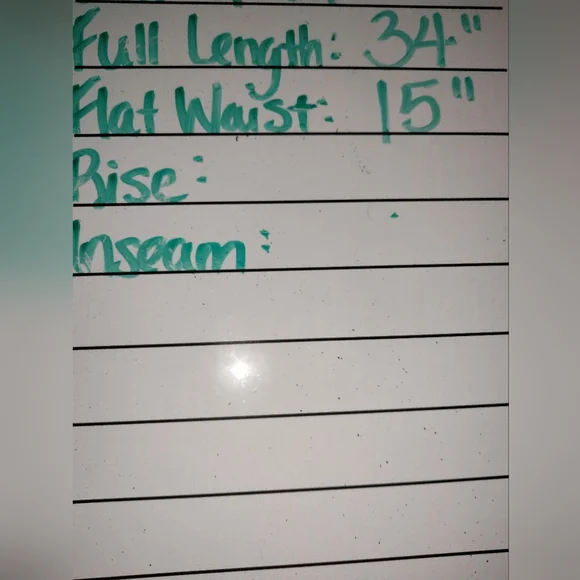 Full Length: 34"
Flat Waist: 15"
Rise:
Inseam: